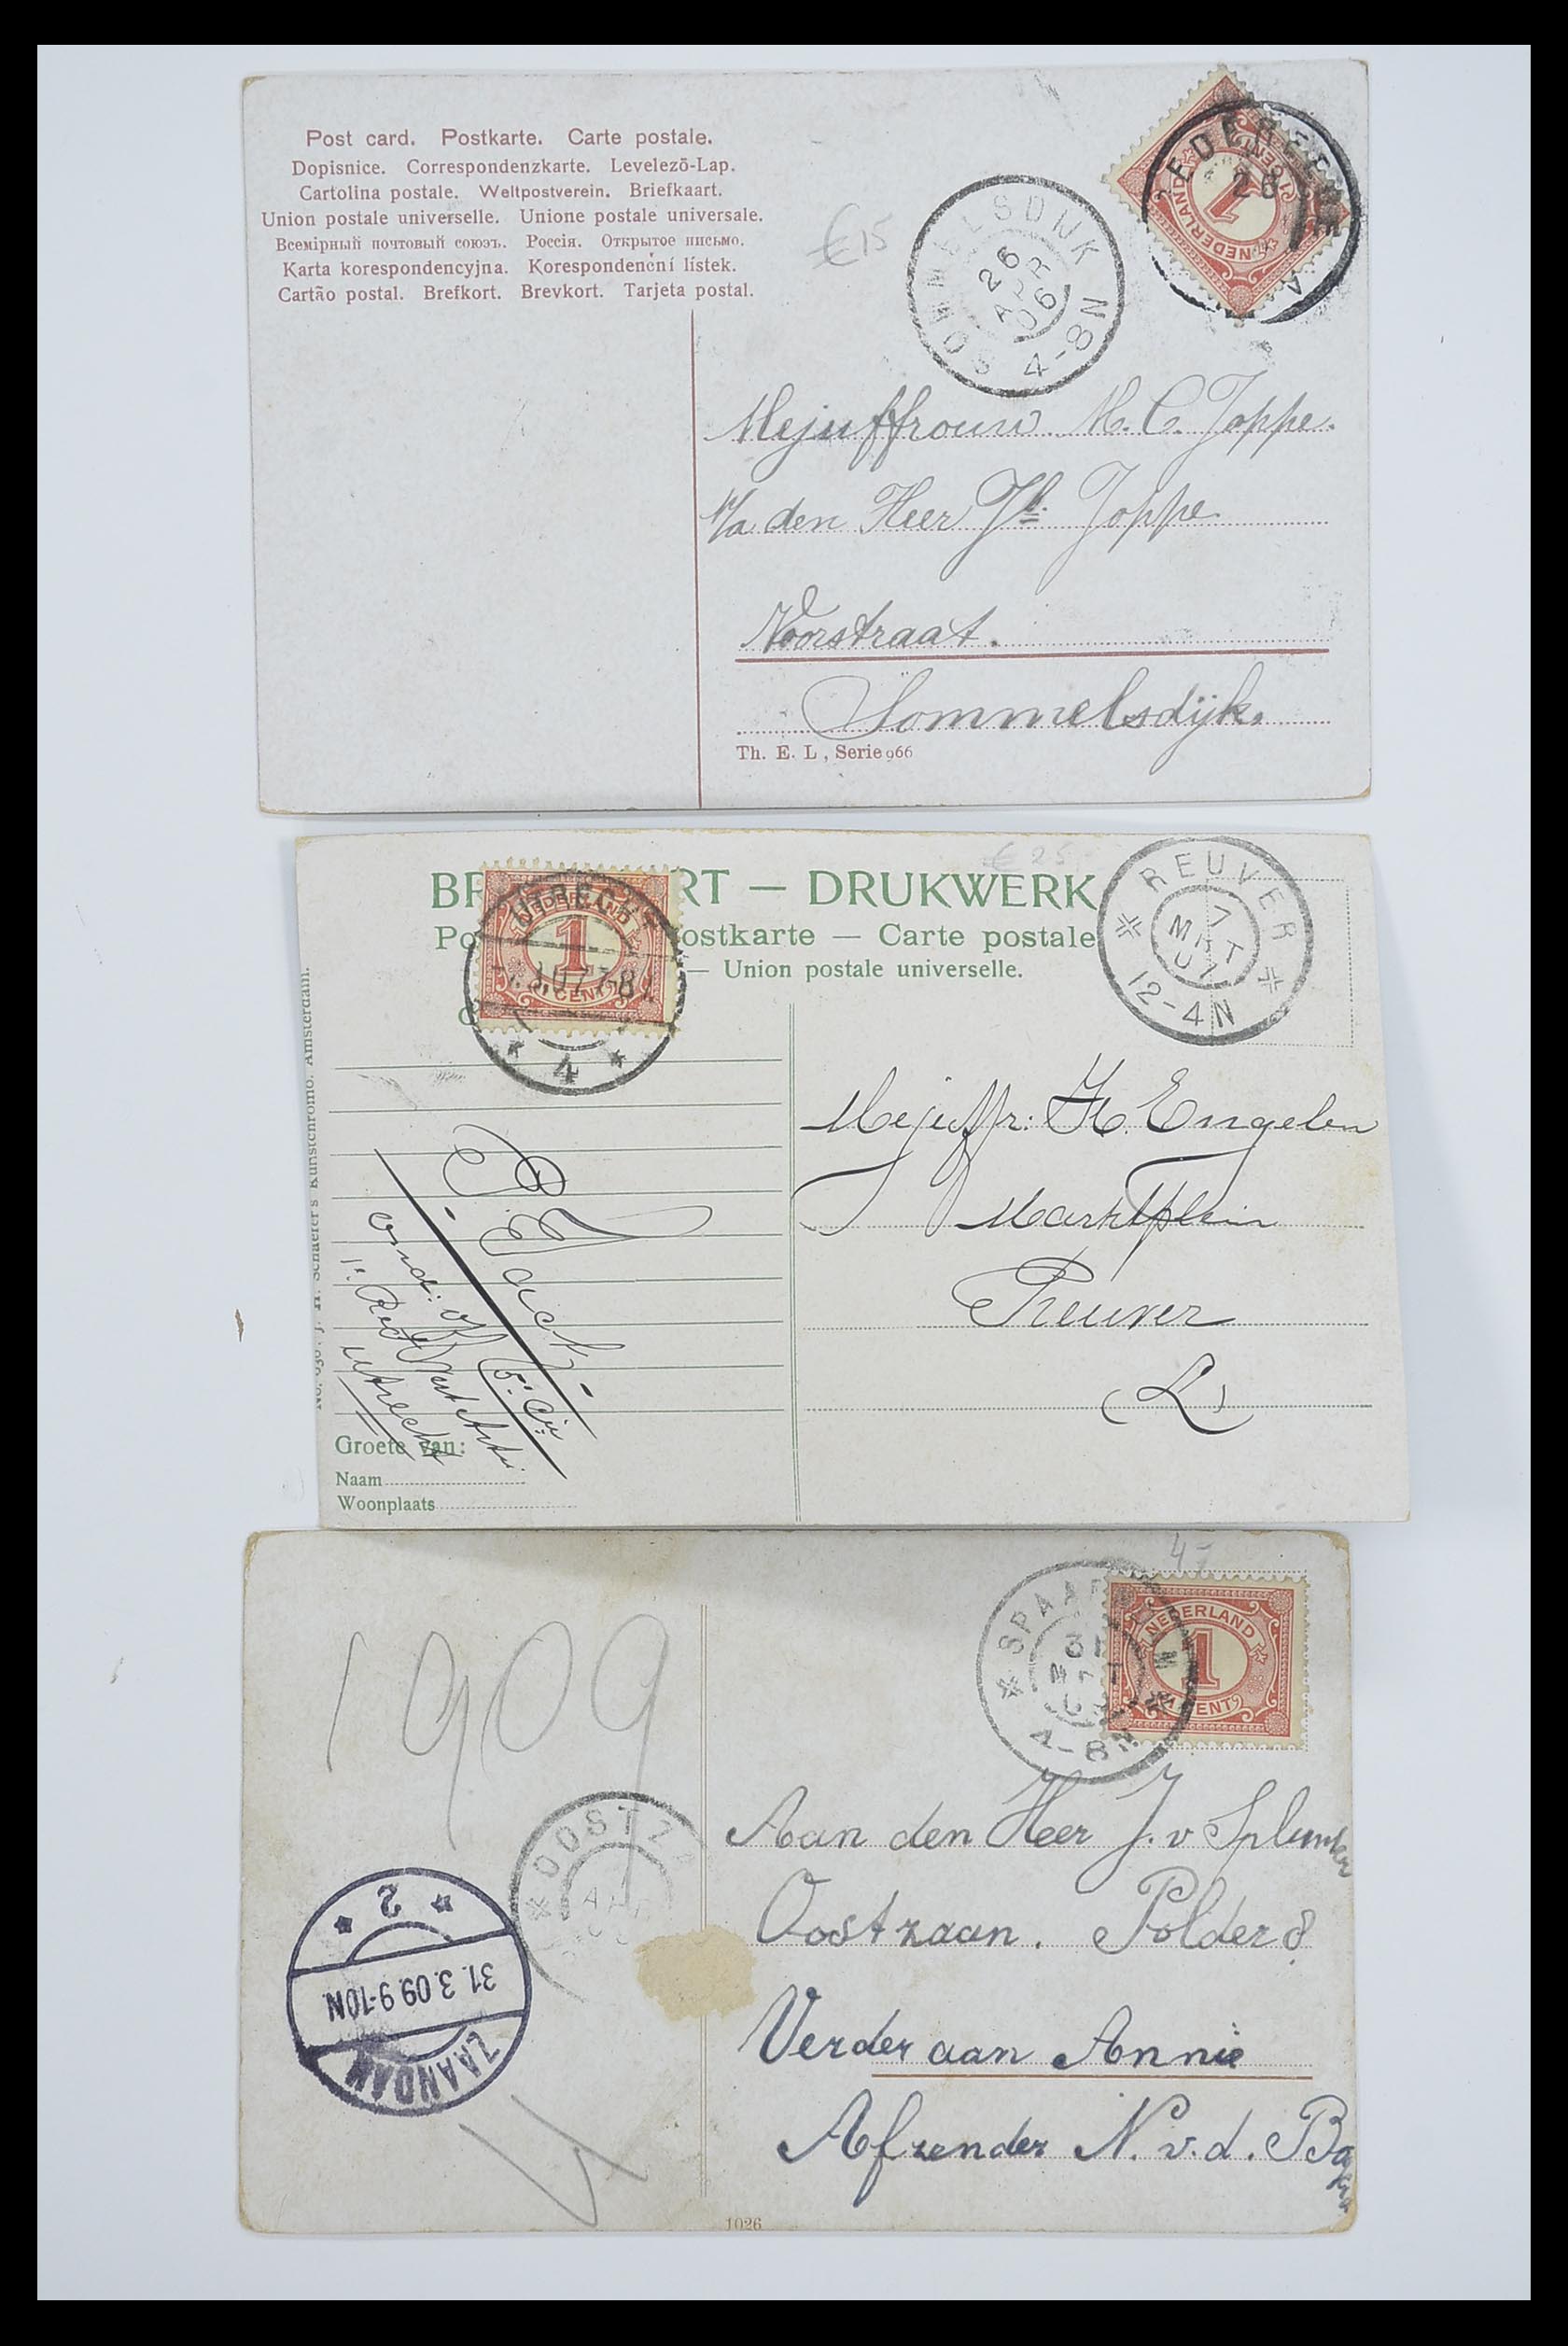 Post card. Postkarte. Carte postale.
Dopisnice. Correspondenzkarte. Levelezō-Lap.
Cartolina postale. Weltpostverein. Briefkaart.
Union postale universelle. Unione postale universale.
Всемірный почтовый союзъ. Россія. Открытое письмо.
Karta korespondencyjna. Korespondenční lístek.
Cartão postal. Brefkort. Brevkort. Tarjeta postal.
€15
SOMMELSDIJK
26
APR
06
4-8N
NEDERLAND
1
CENT
26
Mejuffrouw M. C. Joppe.
p/a den Heer Jb. Joppe
Voorstraat.
Sommelsdijk.
Th. E. L, Serie 966
€ 25
BR RT — DRUKWERK
Po ostkarte — Carte postale
— Union postale universelle.
UTRECHT
NEDERLAND
1
CENT
3.07 7-8
4
REUVER
7
MRT
07
12-4N
Mejuffr: H. Engelen
Marktplein
Reuver
(L)
5e Cie
1e Reg Vest Art
Utrecht
J. H. Schaefer's Kunstchromo. Amsterdam.
Groete van:
Naam
Woonplaats
4-
SPAARN
31
4-8N
NEDERLAND
1
CENT
1909
OOSTZA
2
31.3.09.9-10N
ZAANDAM
Aan den Heer J. v Splunter
Oostzaan. Polder 8
Verder aan Annie
Afzender N. v. d.
1026